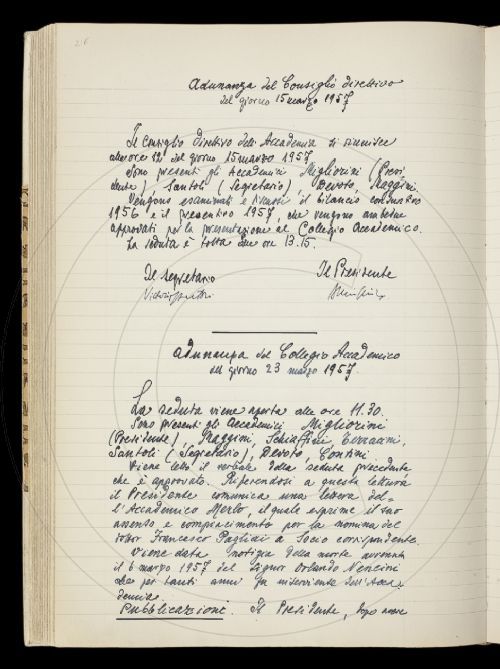 216
Adunanza del Consiglio direttivo
del giorno 15 marzo 1957
Il Consiglio direttivo dell'Accademia si riunisce
alle ore 12 del giorno 15 marzo 1957.
Sono presenti gli Accademici Migliorini (Presi
dente), Santoli (Segretario), Devoto, Maggini.
Vengono esaminati e il bilancio consuntivo
1956 e il preventivo 1957, che vengono ambedue
approvati per la presentazione al Collegio Accademico.
La seduta è tolta alle ore 13.15.
Il Segretario
Il Presidente
Adunanza del Collegio Accademico
del giorno 23 marzo 1957.
La seduta viene aperta alle ore 11.30.
Sono presenti gli Accademici Migliorini
(Presidente), Maggini, Schiaffini,
Santoli (Segretario), Devoto, Contini.
Viene letto il verbale della seduta precedente
che è approvato. Riferendosi a questa lettura
il Presidente comunica una lettera del=
l'Accademico Merlo, il quale esprime il suo
assenso e compiacimento per la nomina del
dottor Francesco Pagliai a Socio corrispondente.
Viene data notizia della morte avvenuta
il 6 marzo 1957 del signor Orlando Nencini
che per tanti anni fu inserviente dell'Acca=
demia.
Pubblicazioni. Il Presidente, dopo avere